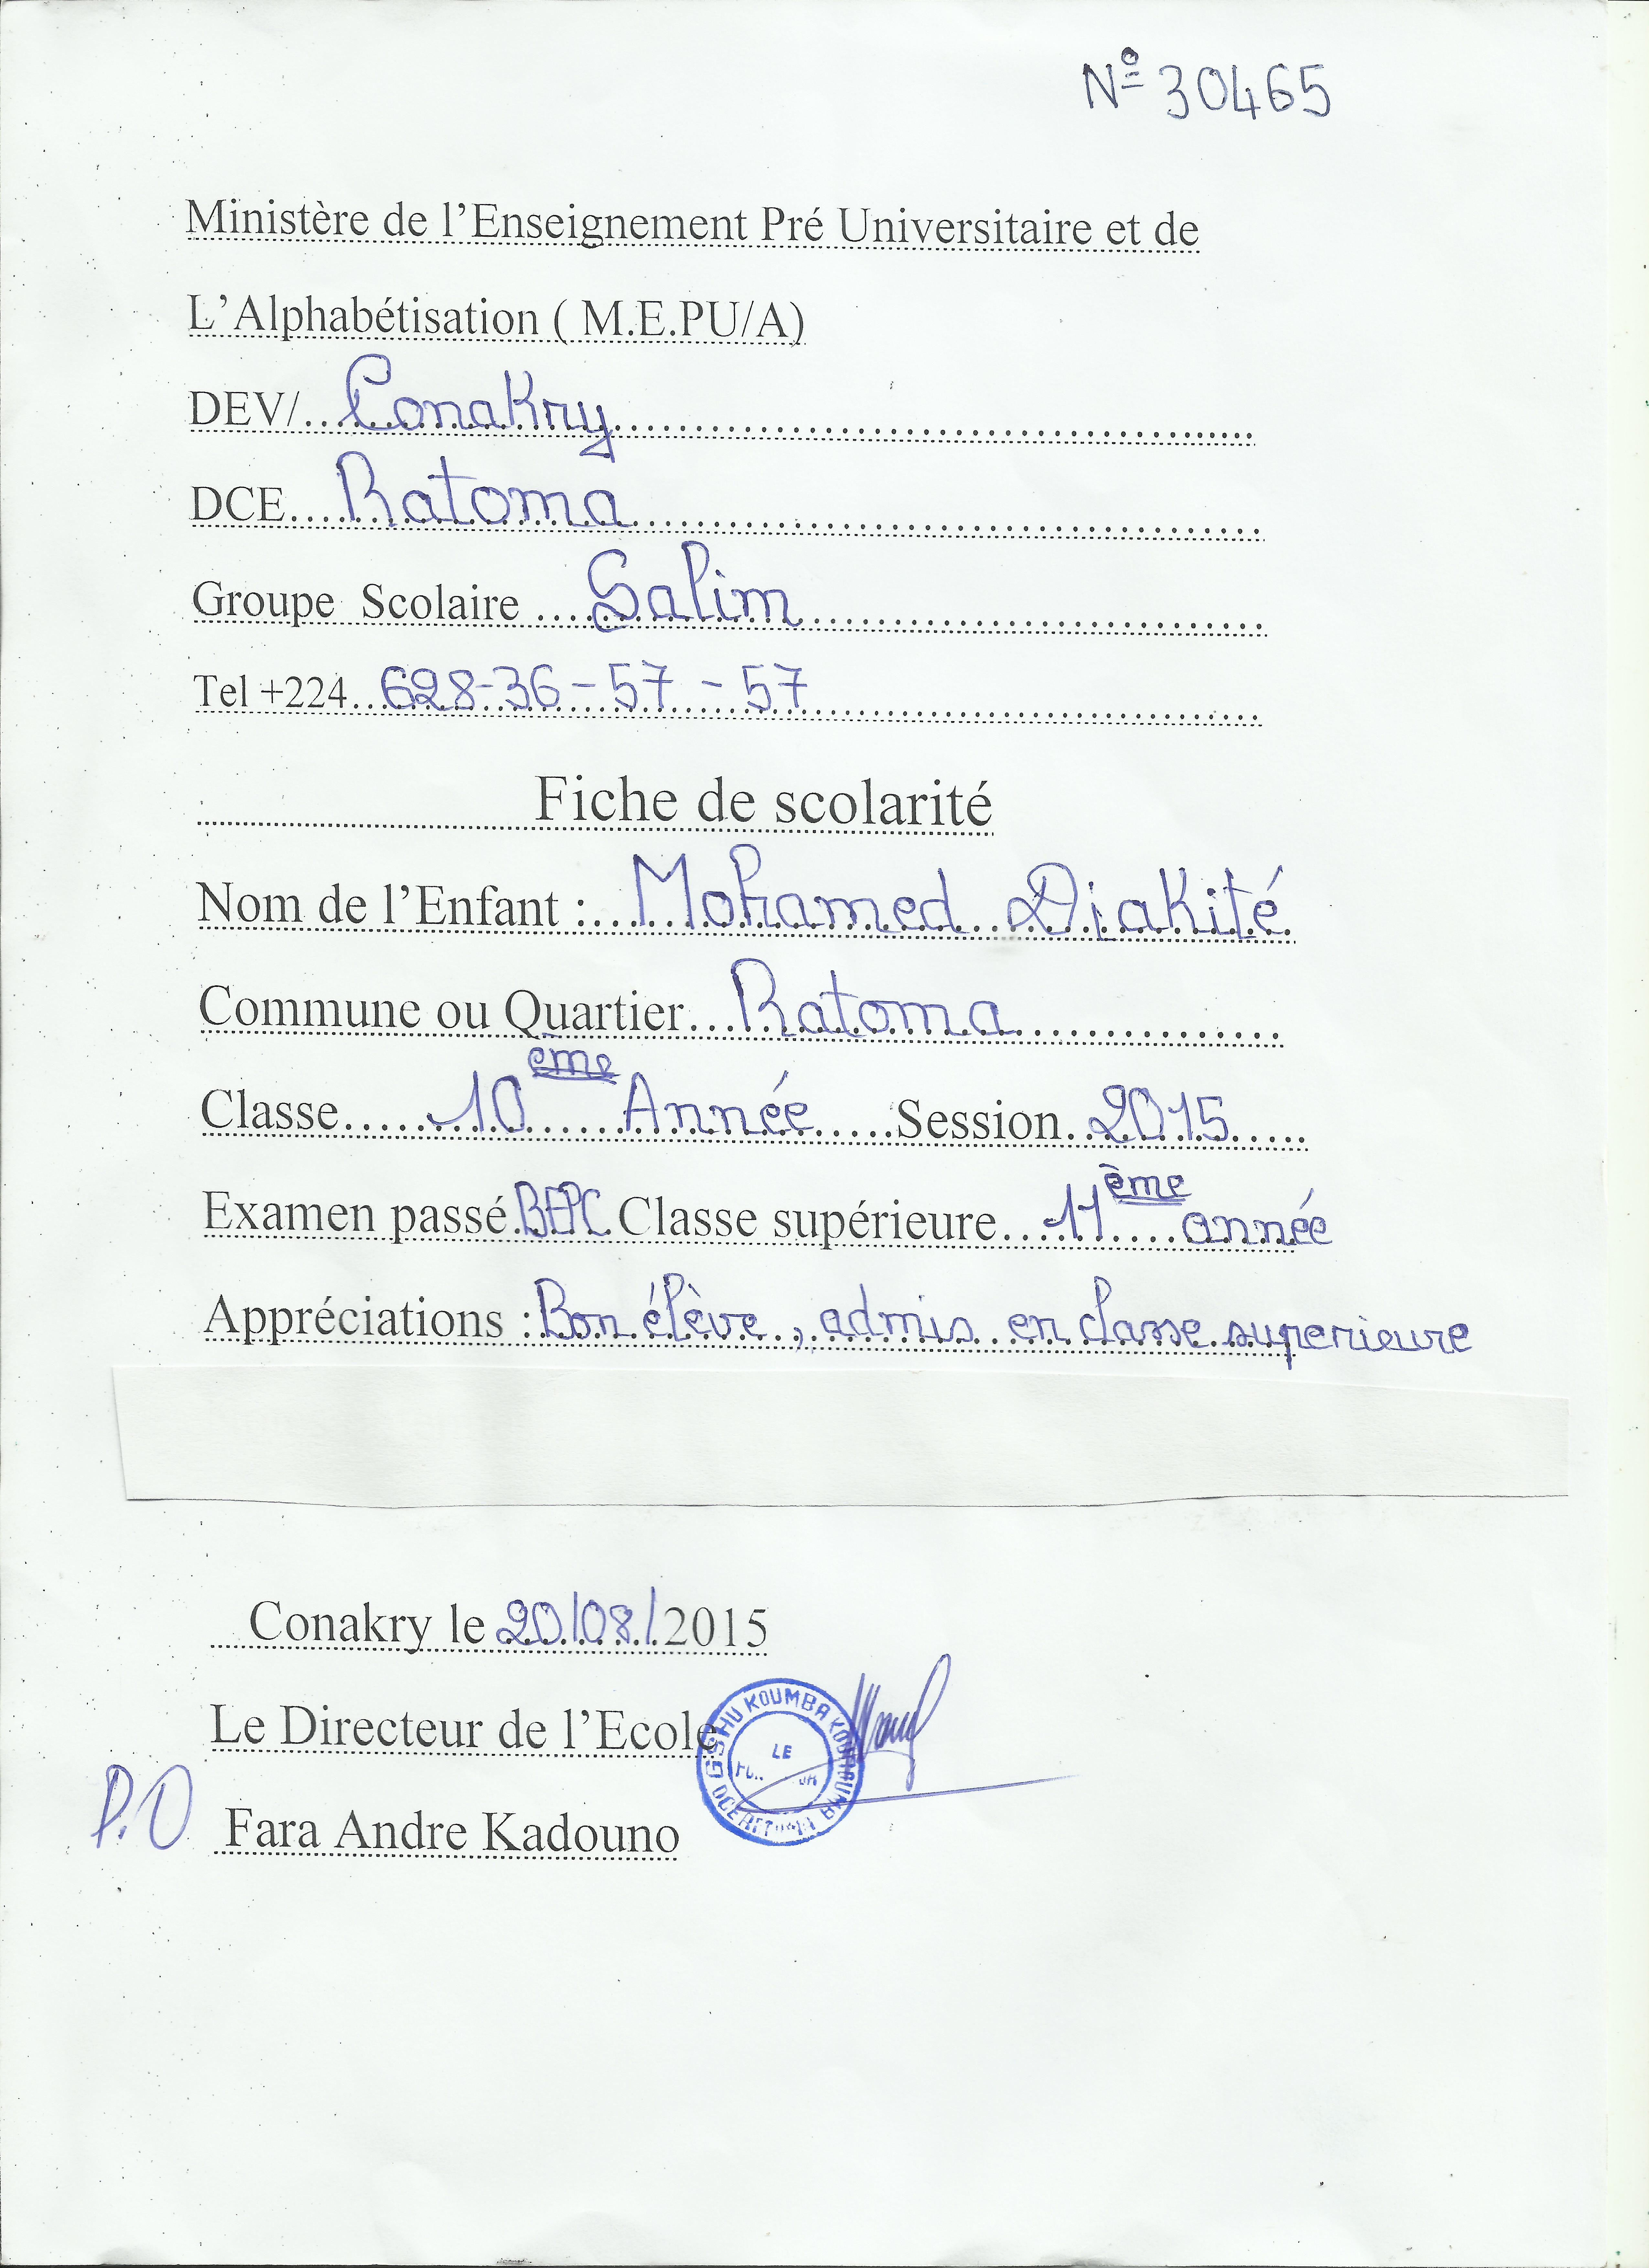 Nº 30465
Ministère de l’Enseignement Pré Universitaire et de
L’Alphabétisation ( M.E.PU/A)
DEV/ Conakry
DCE Ratoma
Groupe Scolaire Salim
Tel +224 628-36-57-57
Fiche de scolarité
Nom de l’Enfant : Mohamed Diakité
Commune ou Quartier Ratoma
Classe 10ème Année Session 2015
Examen passé BEPC Classe supérieure 11ème année
Appréciations : Bon élève, admis en classe superieure
Conakry le 20/08/2015
Le Directeur de l’Ecole
GSHU KOUMBA KOUROUMA
LE
P.O Fara Andre Kadouno